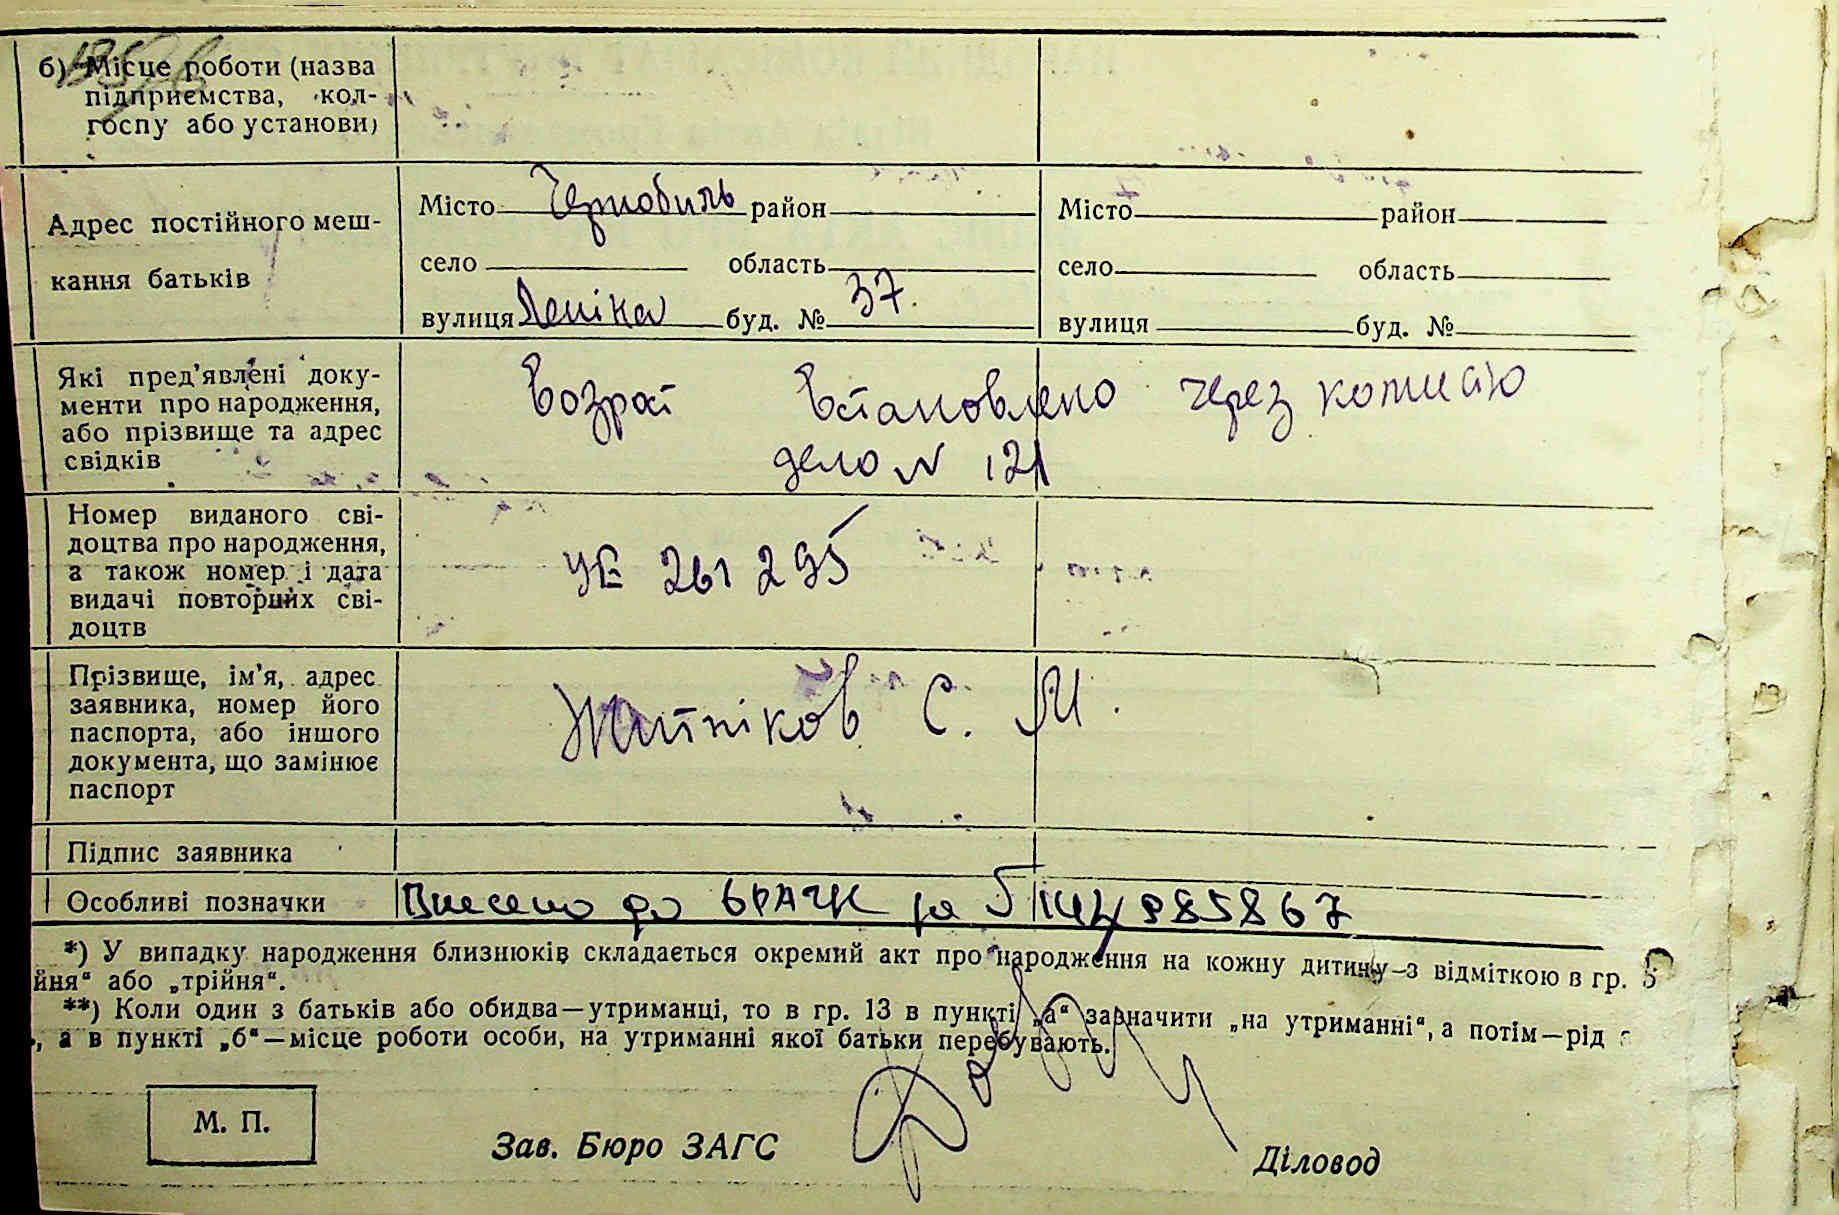 б) Місце роботи (назва
підприємства, кол-
госпу або установи)
Адрес постійного меш-
кання батьків
Місто Чернобиль район
село область
вулиця Леніна буд. № 37.
Місто район
село область
вулиця буд. №
Які пред'явлені доку-
менти про народження,
або прізвище та адрес
свідків
Возраст встановлено через комисію
дело N 121
Номер виданого сві-
доцтва про народження,
а також номер і дата
видачі повторних сві-
доцтв
УЕ 261295
Прізвище, ім'я, адрес
заявника, номер його
паспорта, або іншого
документа, що замінює
паспорт
Житніков С. М.
Підпис заявника
Особливі позначки
Внесено до ДРАЦС за
*) У випадку народження близнюків складається окремий акт про народження на кожну дитину—з відміткою в гр. 5
йня“ або „трійня“.
**) Коли один з батьків або обидва—утриманці, то в гр. 13 в пункті „а“ зазначити „на утриманні“, а потім—рід
, а в пункті „б“—місце роботи особи, на утриманні якої батьки перебувають.
М. П.
Зав. Бюро ЗАГС
Діловод